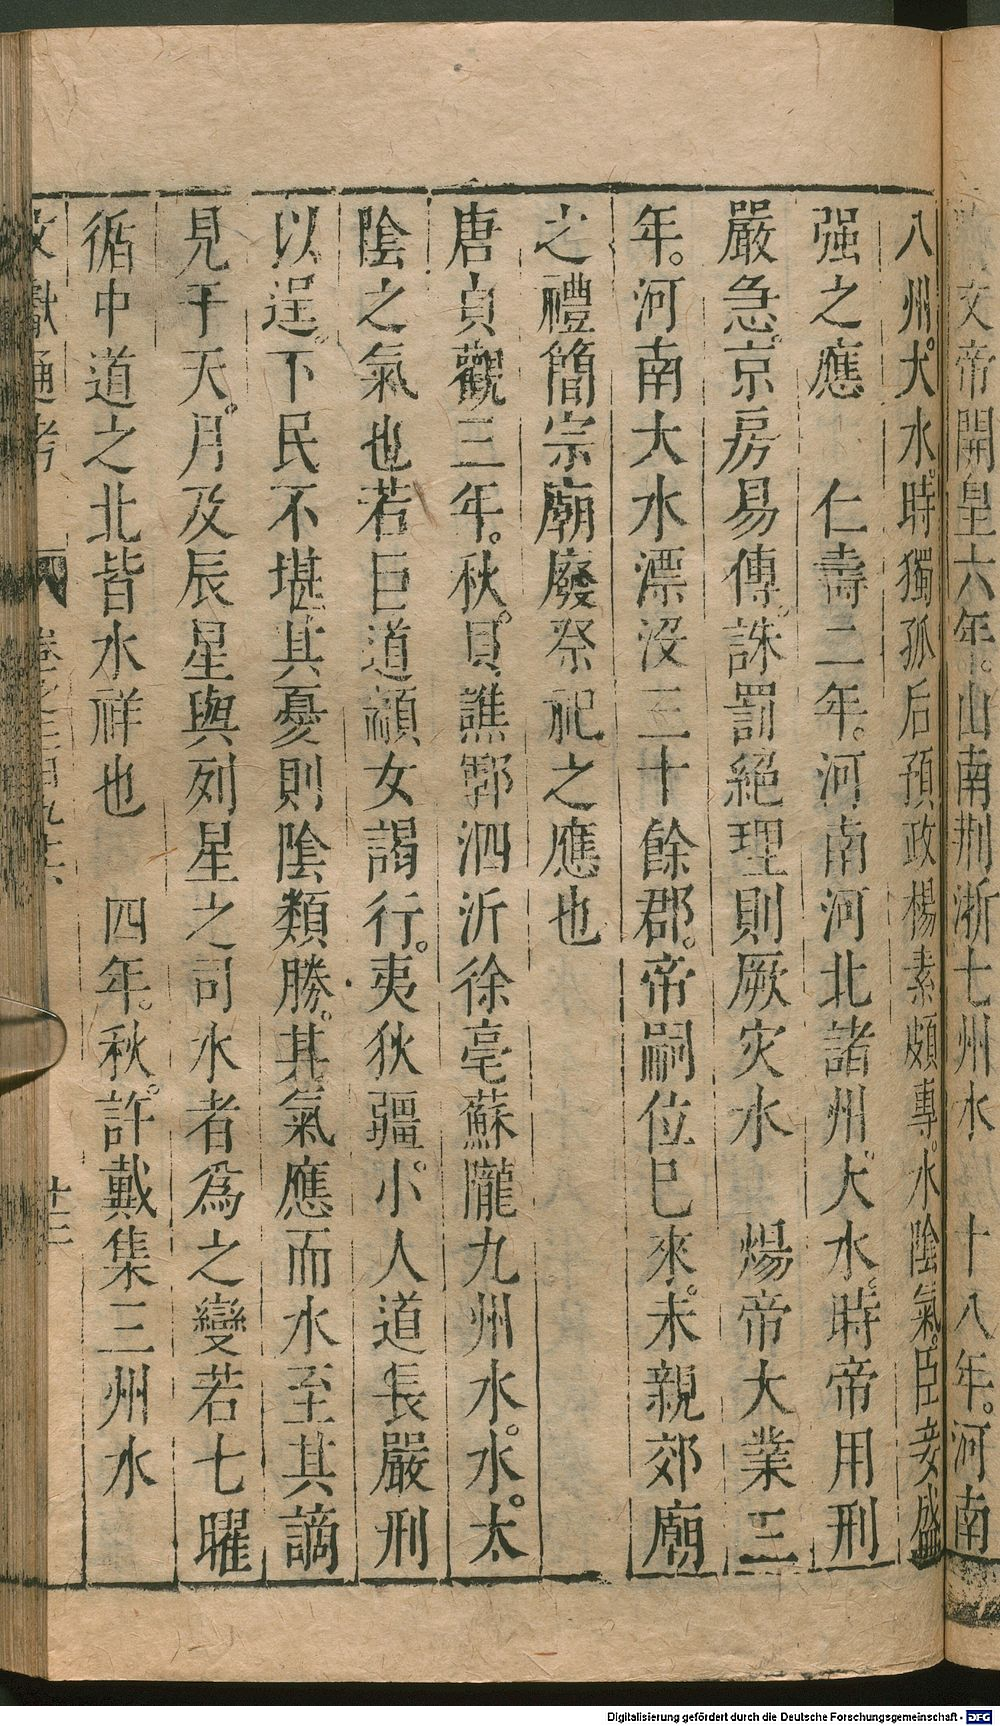 文帝開皇六年。山南荆浙七州水　十八年。河南
八州。大水。時獨孤后預政楊素頗專。水陰氣。臣妾盛
强之應　仁壽二年。河南河北諸州。大水。時帝用刑
嚴急。京房易傳。誅罰絕理則厥灾水　煬帝大業三
年。河南大水漂没三十餘郡。帝嗣位已來。未親郊廟
之禮簡宗廟廢祭祀之應也
唐貞觀三年。秋。貝譙鄆泗沂徐亳蘇隴九州水。水。太
陰之氣也若巨道顓女謁行。夷狄疆。小人道長嚴刑
以逞。下民不堪其憂則陰類勝。其氣應而水至其謫
見于天。月及辰星與列星之司水者為之變若七曜
循中道之北皆水祥也　四年。秋。許戴集三州水
文獻通考　卷之三百九十六　廿二
Digitalisierung gefördert durch die Deutsche Forschungsgemeinschaft - DFG